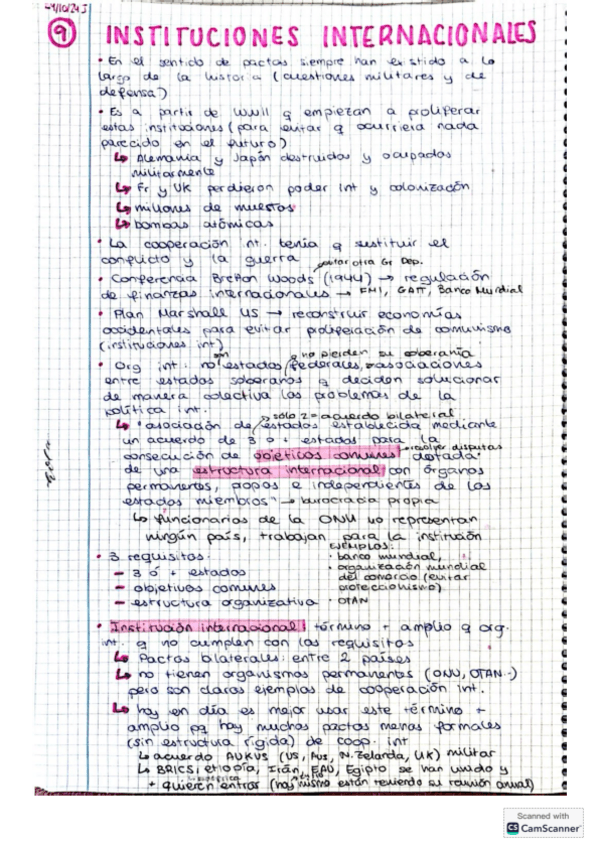 24/10/24 J
⑨ INSTITUCIONES INTERNACIONALES
• En el sentido de pactos siempre han existido a lo
largo de la historia (cuestiones militares y de
defensa)
• Es a partir de WWII q empiezan a proliferar
estas instituciones (para evitar q ocurriera nada
parecido en el futuro)
↳ Alemania y Japón destruidos y ocupados
militarmente
↳ Fr y UK perdieron poder int y colonización
↳ millones de muertos
↳ bombas atómicas
• La cooperación int. tenía q sustituir el
conflicto y la guerra
evitar otra Gr Dep.
• Conferencia Bretton Woods (1944) → regulación
de finanzas internacionales → FMI, GATT, Banco Mundial
• Plan Marshall US → reconstruir economías
occidentales para evitar proliferación de comunismo
(instituciones int)
son q no pierden su soberanía
• Org int: no estados federales, asociaciones
entre estados soberanos q deciden solucionar
de manera colectiva los problemas de la
política int.
→ sólo 2 = acuerdo bilateral
↳ "asociación de estados establecida mediante
un acuerdo de 3 o + estados para la
→ resolver disputas
consecución de objetivos comunes dotada
de una estructura internacional con órganos
permanentes, propios e independientes de los
estados miembros" → burocracia propia
↳ funcionarios de la ONU no representan
ningún país, trabajan para la institución
EJEMPLOS:
• 3 requisitos:
- 3 ó + estados
- objetivos comunes
- estructura organizativa
• banco mundial,
• organización mundial
del comercio (evitar
proteccionismo)
• OTAN
• Institución internacional: término + amplio q org.
int. q no cumplen con los requisitos
↳ Pactos bilaterales: entre 2 países
↳ no tienen organismos permanentes (ONU, OTAN..)
pero son claros ejemplos de cooperación int.
↳ hoy en día es mejor usar este término +
amplio pq hay muchos pactos menos formales
(sin estructura rígida) de coop. int
↳ acuerdo AUKUS (US, Aus, N. Zelanda, UK) militar
↳ BRICS; etiopía, Irán, EAU, Egipto se han unido y
+ quieren entrar (hoy mismo están teniendo su reunión anual)
Scanned with
CS CamScanner